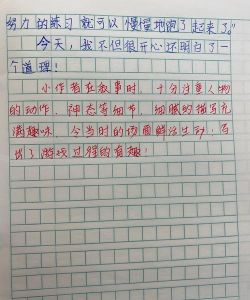 努力的练习就可以慢慢地跑了起来了。”
今天，我不但很开心还明白了一
个道理！
小作者在叙事时，十分注意人物
的动作、神态等细节，细腻的描写充
满趣味，令当时的校园鲜活生动，写
出了游戏过程的有趣！